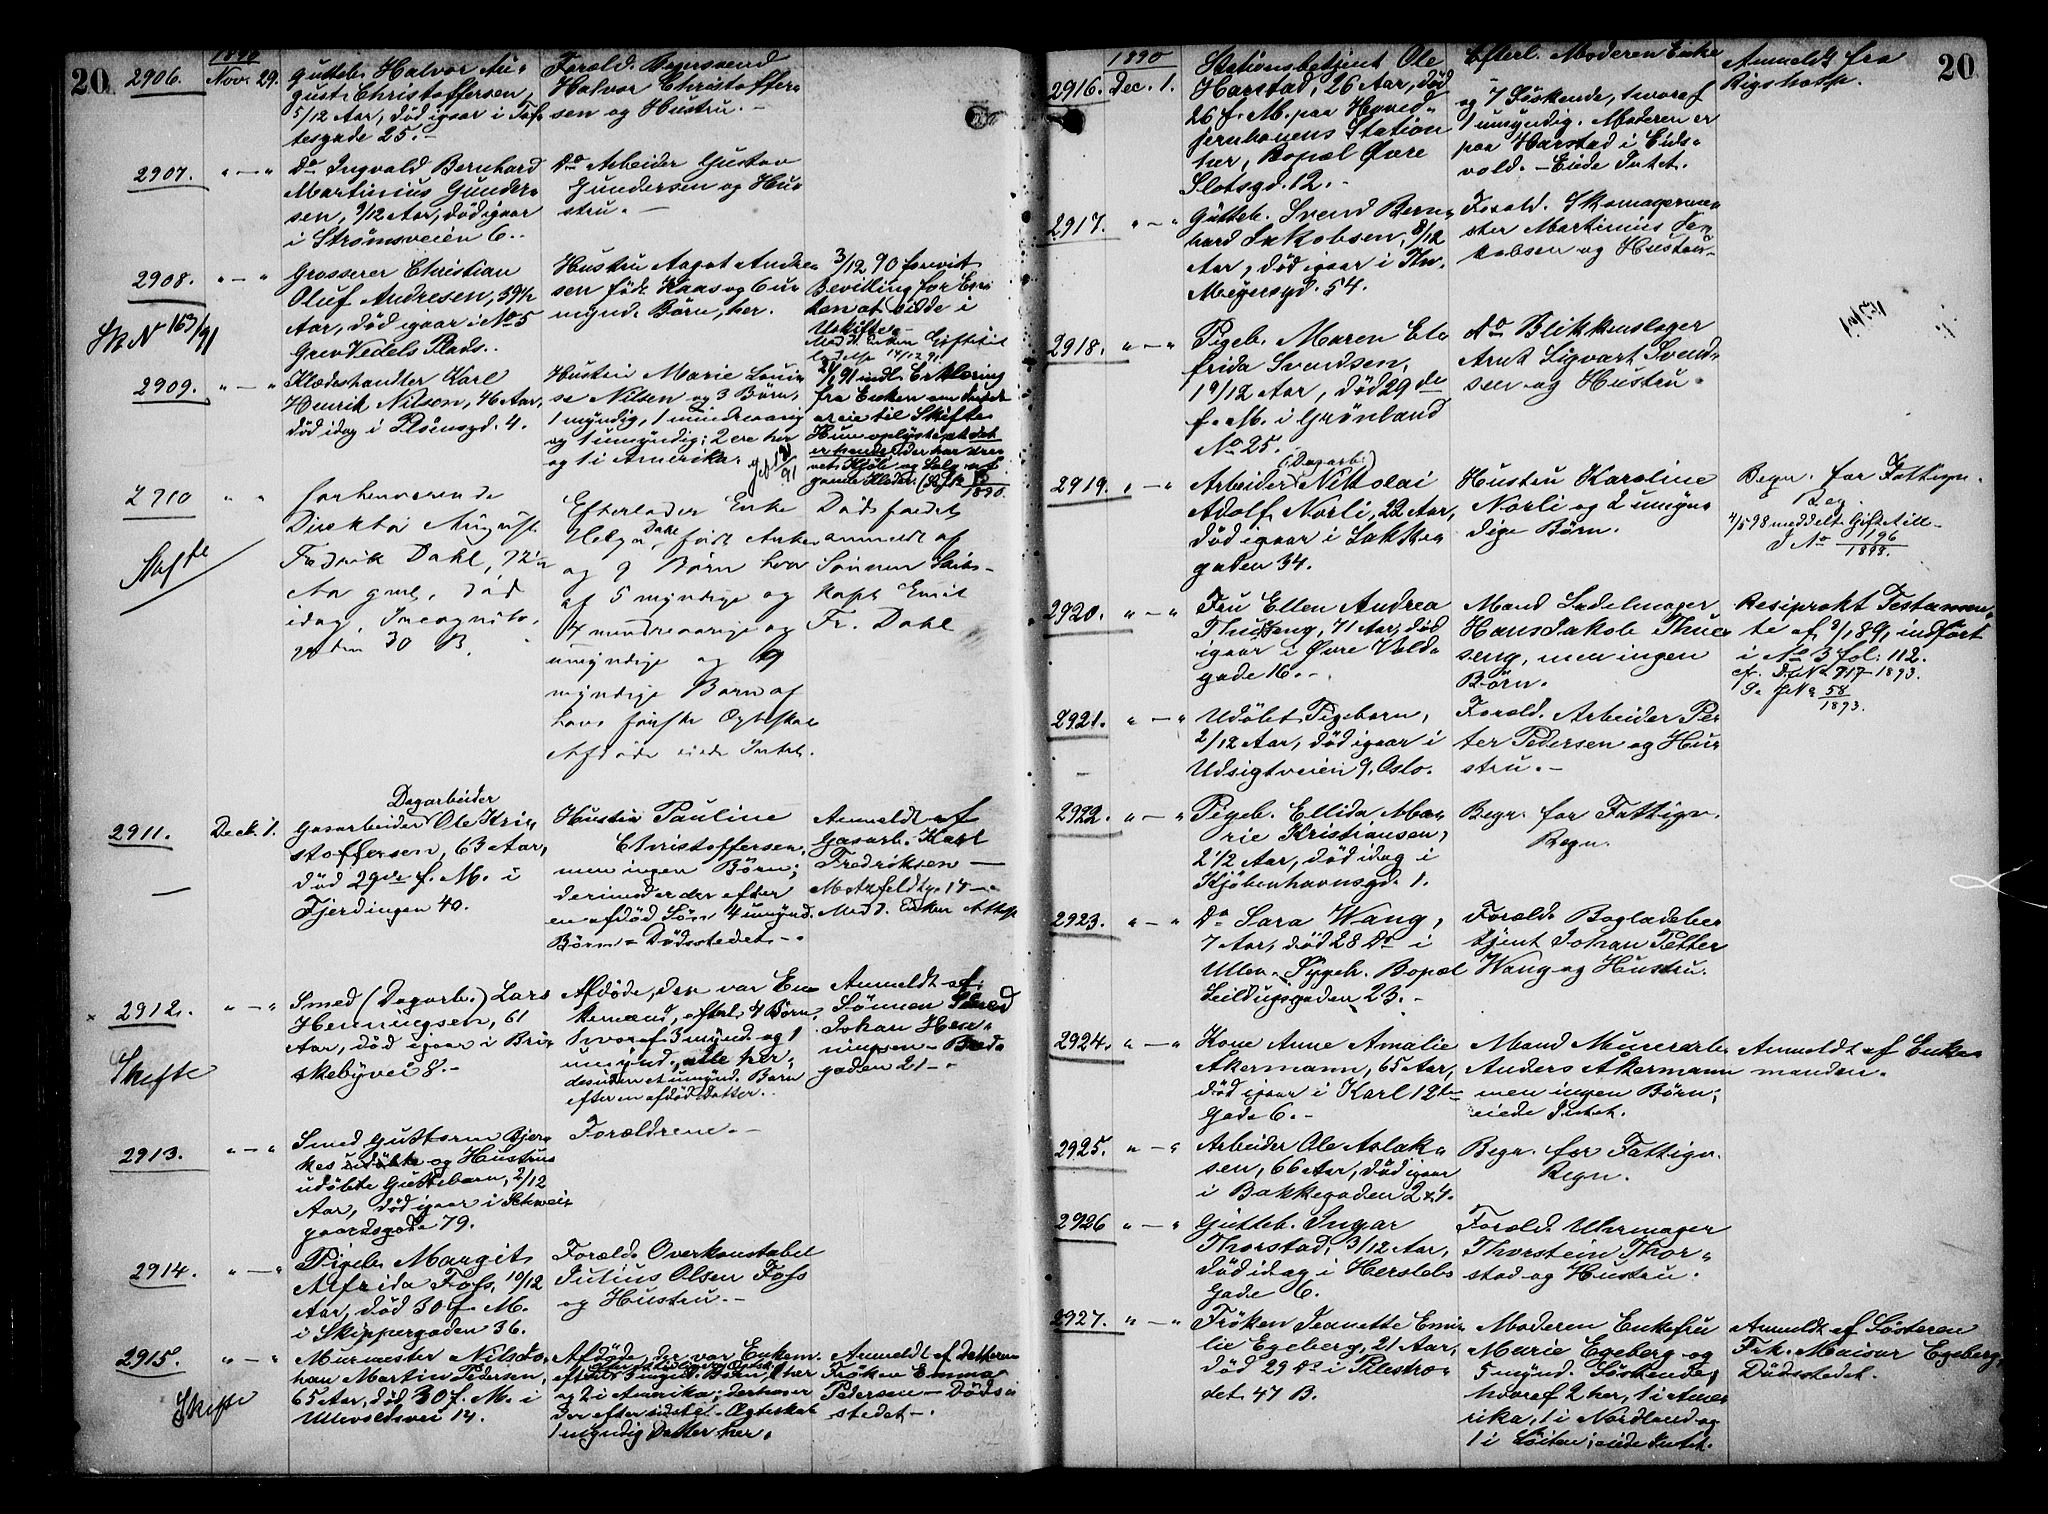 20
1890
2906.
Nov. 29.
Guttebn. Halvor Au-
gust Christoffersen,
5/12 Aar, död igaar i Tof-
tesgade 25.-
Foræld.
Halvor Christoffer-
sen og Hustru.-
2907.
" - "
Do Ingvald Bernhard
Martinius Gunder-
sen, 9/12 Aar, död igaar
i Strömsveien 6.
Do Arbeider Gustav
Gundersen og Hu-
stru.-
2908.
" - "
Grosserer Christian
Oluf Andresen, 39½
Aar, död igaar i No 5
Grev Vedels Plads.
Hustru Aagot Andre-
sen föd Kaas og 6 u-
mynd. Börn, her.
3/12 90 forevist
Bevilling for En-
ken at sidde i
Uskifte.-
Sk N 163/91
2909.
" - "
Klædeshandler Karl
Henrik Nilsen, 46 Aar,
död idag i Pløensgd. 4.
Hustru Marie Loui-
se Nilsen og 3 Börn,
1 myndig, 1 mindreaarig
og 1 umyndig; 2 ere her
og 1 i Amerika.
2/1 91 indl. Erklæring
fra Enken
til Skifte
1890.
2910
" "
forhenværende
Direktör August
Fredrik Dahl, 72½
Aar gml, död
idag, Incognito-
gaden 30 B.
Efterlader Enke
Helga Dahl, född Anker
og 9 Börn hvor
af 5 myndige og
4 mindreaarige og
umyndige og
myndige Barn af
hans förste Ægteskab
Afdöde eiede Intet.
Dödsfaldet
anmeldt af
Sönnen Skibs-
kapt Emil
Fr. Dahl
Skifte
2911.
Decb. 1.
Dagarbeider
Gasarbeider Ole Kri-
stoffersen, 63 Aar,
död 29de f. M. i
Fjerdingen 40.
Hustru Pauline
Christoffersen,
men ingen Börn;
derimod er der efter
en afdöd Sön 4 umynd.
Börn - Dödsstedet.-
Anmeldt af
Gasarb. Karl
Fredriksen -
Motzfeldtg. 14-
Medd. Enken Attest
2912.
" - "
Smed (Dagarb.) Lars
Henningsen, 61
Aar, död igaar i Bri-
skebyvei 8.-
Afdöde, der var En-
kemand, efterl. 4 Börn,
hvoraf 3 mynd. og 1
umynd., alle her;
desuden et umynd. Barn
efter en afdöd Datter.
Anmeldt af
Sönnen Smed
Johan Hen-
ningsen - Bred-
gaden 21-
Skifte
2913.
" - "
Smed Guttorm Bjer-
kes udöbte og Hustrus
udöbte Guttebarn, 2/12
Aar, död igaar i Schwei-
gaardsgade 79.
Forældrene.-
2914.
" - "
Pigebn. Margit
Alfrida Foss, 10/12
Aar, död 30 f. M.
i Skippergaden 36.
Foræld. Overkonstabel
Julius Olsen Foss
og Hustru.-
2915.
" - "
Murmester Nils Jo-
han Martin Pedersen,
65 Aar, död 30 f. M. i
Ullevoldsvei 14.
Afdöde, der var Enkem.
efterl. 3 mynd. Börn, 1 her
og 2 i Amerika; derhos er
der efter sidste Ægteskab
1 myndig Datter her.
Anmeldt af Datteren
Fröken Emma
Pedersen - Döds-
stedet-.
Skifte
20
1890
2916.
Dec. 1.
Stationsbetjent Ole
Harstad, 26 Aar, död
26 f. M. paa Hoved-
jernbanens Station
her, Bopæl Övre
Slotsgd. 12.-
Efterl. Moderen Enke
og 7 Söskende, hvoraf
1 umyndig. Moderen er
paa Harstad i Eids-
vold. - Eiede Intet.
Anmeldt fra
Rigshosp.
2917.
" - "
Gutteb. Svend Bern-
hard Jakobsen, 8/12
Aar, död igaar i Thv.
Meyersgd. 54.
Foræld. Skomagerme-
ster Martinius Ja-
kobsen og Hustru-
2918.
" - "
Pigeb. Maren El-
frida Svendsen,
10/12 Aar, död 29de
f. M. i Grönland
No 25.
do Blikkenslager
Arnt Sigvart Svend-
sen og Hustru.
2919.
" - "
(Dagarb.)
Arbeider Nikolai
Adolf Norli, 22 Aar,
död igaar i Lakke-
gaden 34.
Hustru Karoline
Norli og 2 umyn-
dige Börn.
Begr. for Fattigv.
Reg.
4/5 98 meddelt Giftetill-
J No 196
1898.
2920.
" - "
Fru Ellen Andrea
Thueseng, 71 Aar, död
igaar i Övre Vold-
gade 16.-
Mand Sadelmager
Hans Jakob Thue-
seng, men ingen
Börn.
Resiprokt Testamen-
te af 9/1 89, indfört
i No 3 fol: 112.
cfr. D No 717 - 1893.
58
1893.
2921.
" - "
Udöbt Pigebarn,
2/12 Aar, död igaar i
Udsigtveien 9, Oslo.
Foræld. Arbeider Pe-
ter Pedersen og Hu-
stru.-
2922.
" - "
Pigeb. Ellida Ma-
rie Kristiansen,
2½ Aar, död idag i
Kjöbenhavnsgd. 1.
Begr. for Fattigv.
Regn.
2923.
" - "
Do Sara Wang,
7 Aar, död 28 do i
Ullev. Sygeh. Bopæl
Seildugsgaden 23.-
Foræld. Bogladebe-
tjent Johan Petter
Wang og Hustru.
2924.
" - "
Kone Anne Amalie
Åkermann, 65 Aar,
död igaar i Karl 12tes
Gade 6.-
Mand Murerarb.
Anders Åkermann
men ingen Börn;
eiede Intet.
Anmeldt af Enke-
manden.
2925.
" - "
Arbeider Ole Aslak-
sen, 66 Aar, död igaar
i Bakkegaden 2&4.
Begr. for Fattigv.
Regn.
2926
" - "
Gutteb. Ingar
Thorstad, 3/12 Aar,
död idag i Herslebs
Gade 6.
Foræld. Uhrmager
Thorstein Thor-
stad og Hustru.
2927.
" - "
Fröken Jeanette Emi-
lie Egeberg, 21 Aar,
död 29 ds i Pilestræ-
det 47 B.
Moderen Enkefru
Marie Egeberg og
5 mynd. Söskende,
hvoraf 2 her, 1 i Ame-
rika, 1 i Nordland og
1 i Löiten; eiede Intet.
Anmeldt af Söstern
Frk. Egeberg,
Dödsstedet.